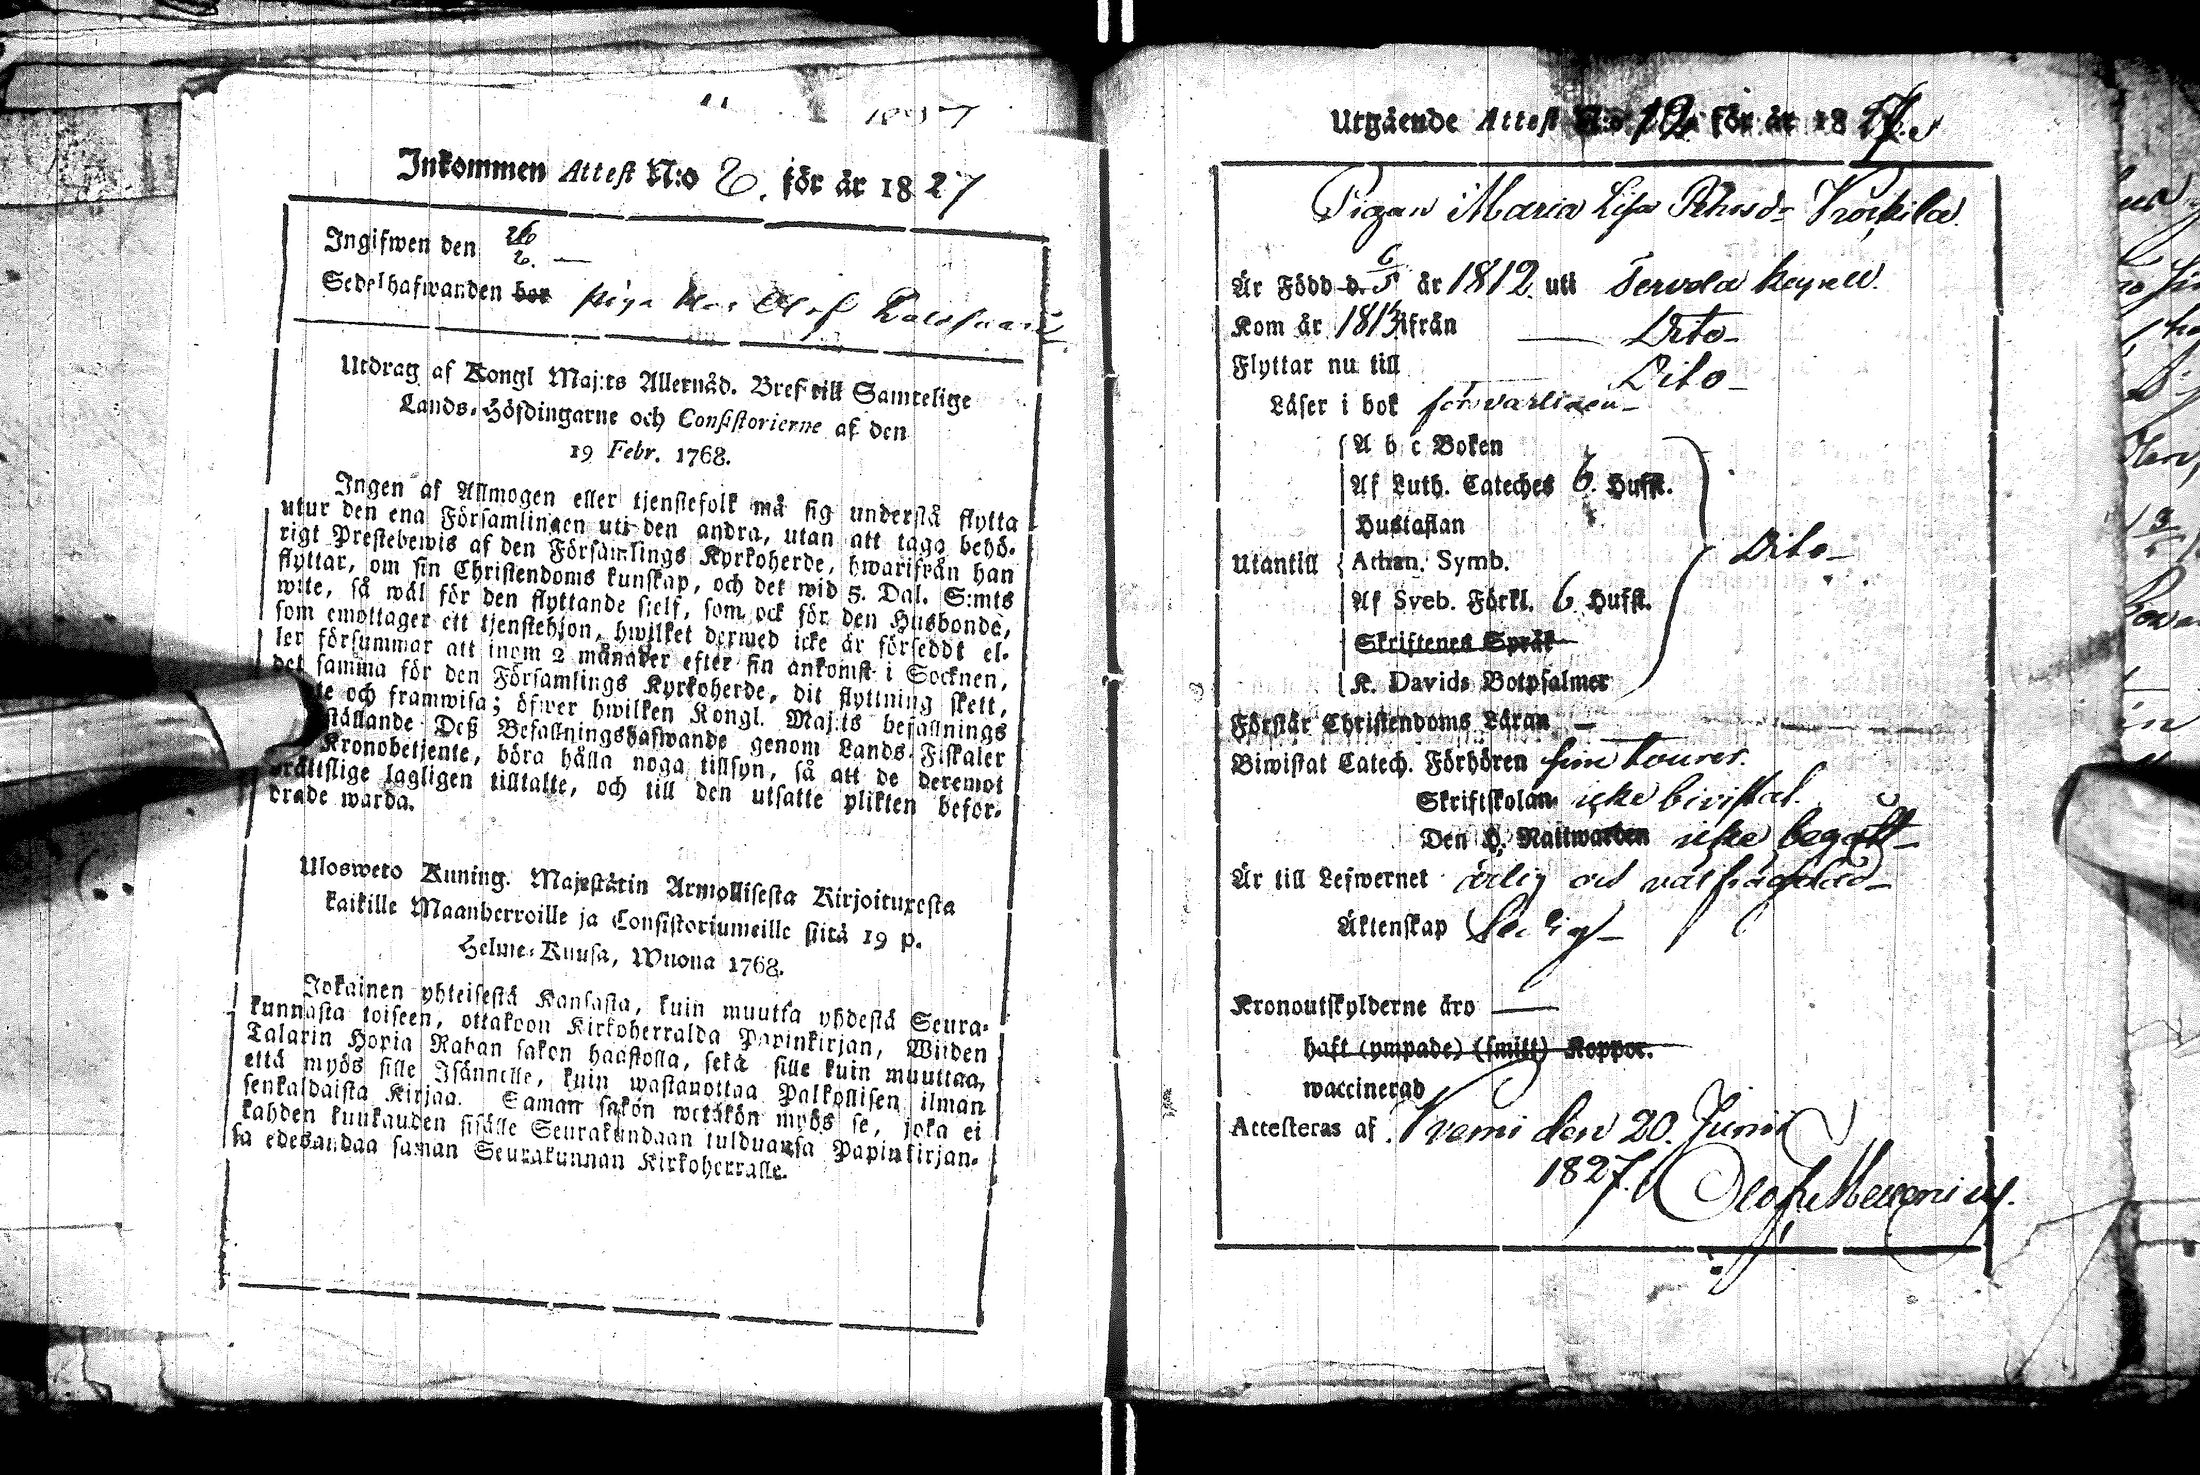 1827
Inkommen Attest N:o 6. för år 1827
Ingifwen den 26/6. —
Sedelhafwanden bor piga hos Olof
Utdrag af Kongl Maj:ts Allernåd. Bref till Samtelige
Lands-Höfdingarne och Consistorierne af den
19 Febr. 1768.
Ingen af Allmogen eller tjenstefolk må sig understå flytta
utur den ena Församlingen uti den andra, utan att taga behö-
rigt Prestebewis af den Församlings Kyrkoherde, hwarifrån han
flyttar, om sin Christendoms kunskap, och det wid 5. Dal. S:mts
wite, så wäl för den flyttande sjelf, som ock för den Husbonde,
som emottager ett tjenstehjon, hwilket dermed icke är förseddt el-
ler försummar att inom 2 månader efter sin ankomst i Socknen,
det samma för den Församlings Kyrkoherde, dit flyttning skett,
te och framwisa; öfwer hwilken Kongl. Maj:ts befallnings
ställande Deß Befallningshafwande genom Lands-Fiskaler
Kronobetjente, böra hålla noga tillsyn, så att de deremot
brättslige lagligen tilltalte, och till den utsatte plikten befor-
drade warda.
Uloswero Kuning. Majestätin Armollisesta Kirjoituxesta
kaikille Maanherroille ja Consistoriumeille siitä 19 p.
Helme-Kuusa, Wuona 1768.
Jokainen yhteisestä Kansasta, kuin muutta yhdestä Seura-
kunnasta toiseen, ottakoon Kirkoherralda Papinkirjan, Wiiden
Talarin Hopia Rahan sakon haastolla, sekä sille kuin muuttaa,
että myös sille Isännelle, kuin wastanottaa Palkollisen ilman
senkaldaista Kirjaa. Saman sakon wetäkön myös se, joka ei
kahden kuukauden sisälle Seurakundaan tulduansa Papinkirjan-
sa edesandaa saman Seurakunnan Kirkoherralle.
Utgående Attest N:o 12. för år 1827.
Pigan Maria Lisa
Är Född d. 6/5 år 1812 uti Tervola
Kom år 1813 ifrån — Dito—
Flyttar nu till Dito—
Läser i bok försvarligen—
A b c Boken
Af Luth. Cateches 6. Hufst.
Hustaflan
Utantill Athan. Symb. Dito—
Af Sveb. Förkl. 6 Hufst.
Skriftenes Språk
K. Davids Botpsalmer
Förstår Christendoms Läran —
Biwistat Catech. Förhören sine tourer.
Skriftskolan icke bivistat.
Den H. Nattwarden icke begått—
Är till Lefwernet ärlig och välfrägdad—
Äktenskap Ledig—
Kronoutskylderne äro —
haft (ympade) (smitt) Koppor.
waccinerad
Attesteras af. Kemi den 20. Junii
1827. Olof